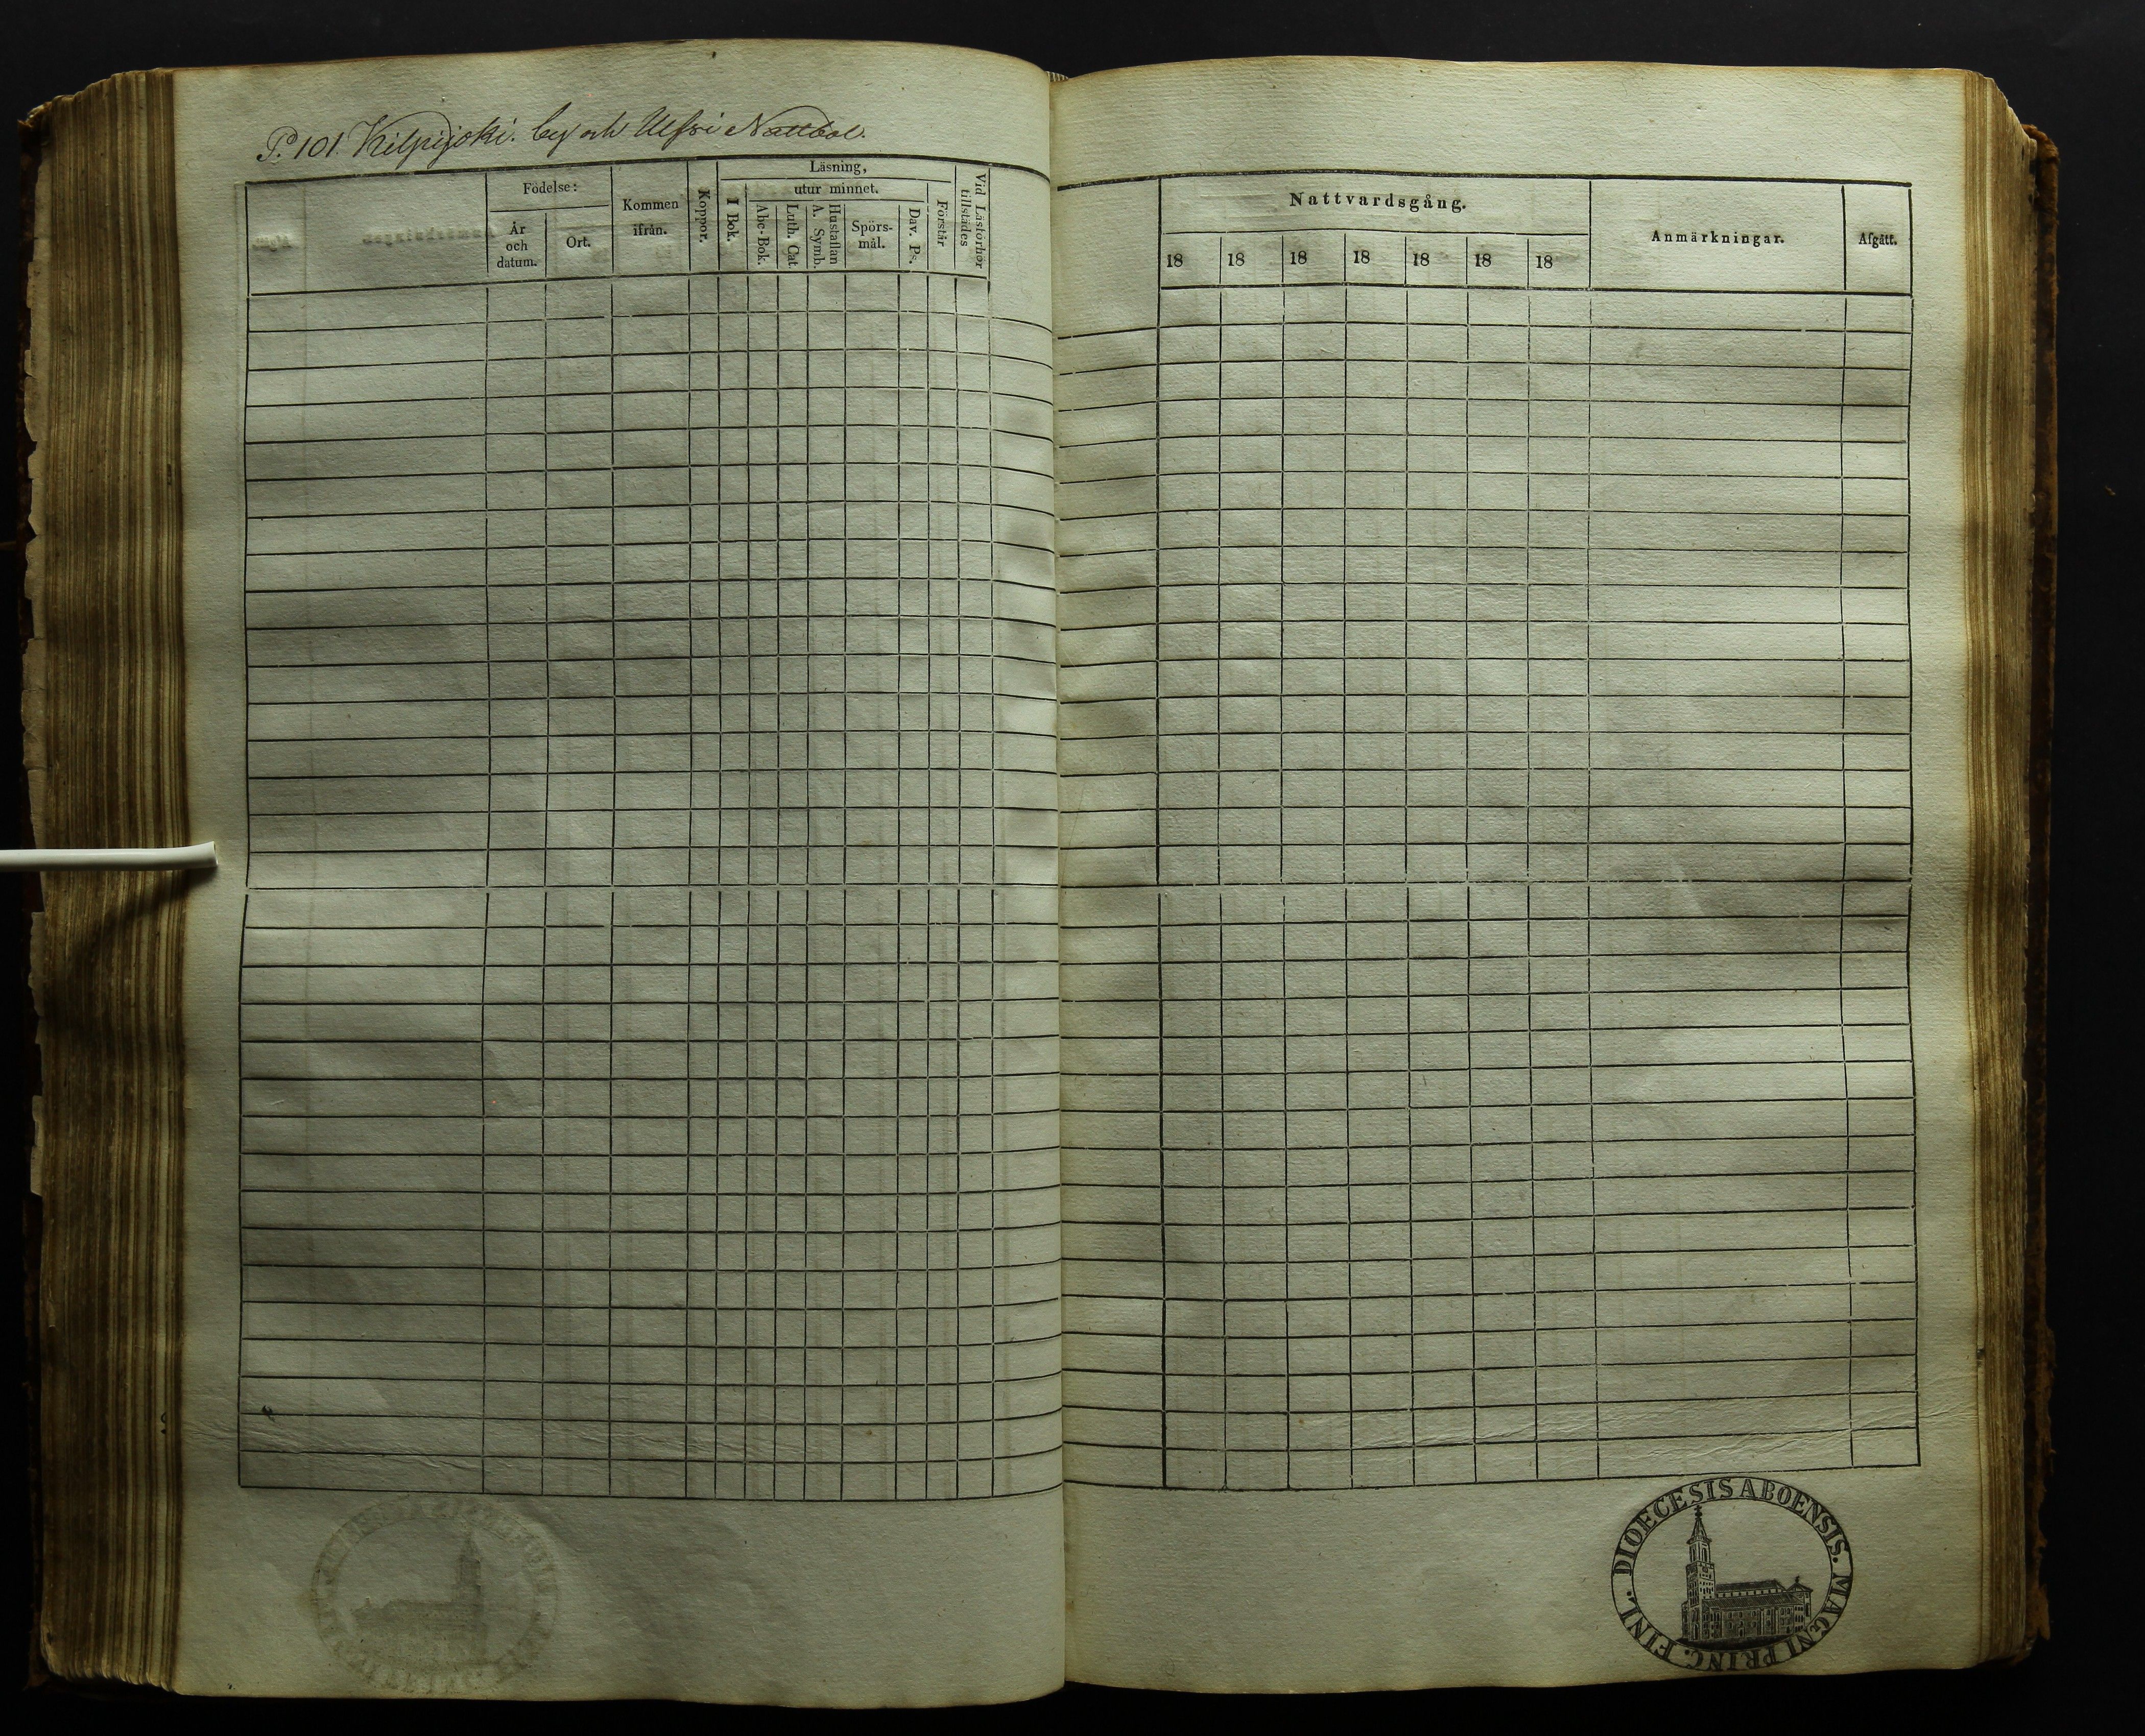 P. 101. Kilpijoki. by och Ulfsi Nattbol.
Födelse:
År och datum.
Ort.
Kommen ifrån.
Koppor.
Läsning,
I Bok.
utur minnet.
Abc-Bok.
Luth. Cat.
Hustaflan A. Symb.
Spörs-mål.
Dav. Ps.
Förstår
Vid Läsförhör tillstädes
Nattvardsgång.
18 18 18 18 18 18 18
Anmärkningar.
Afgått.
DIOECESIS ABOENSIS. MAGNI PRINC. FINL.